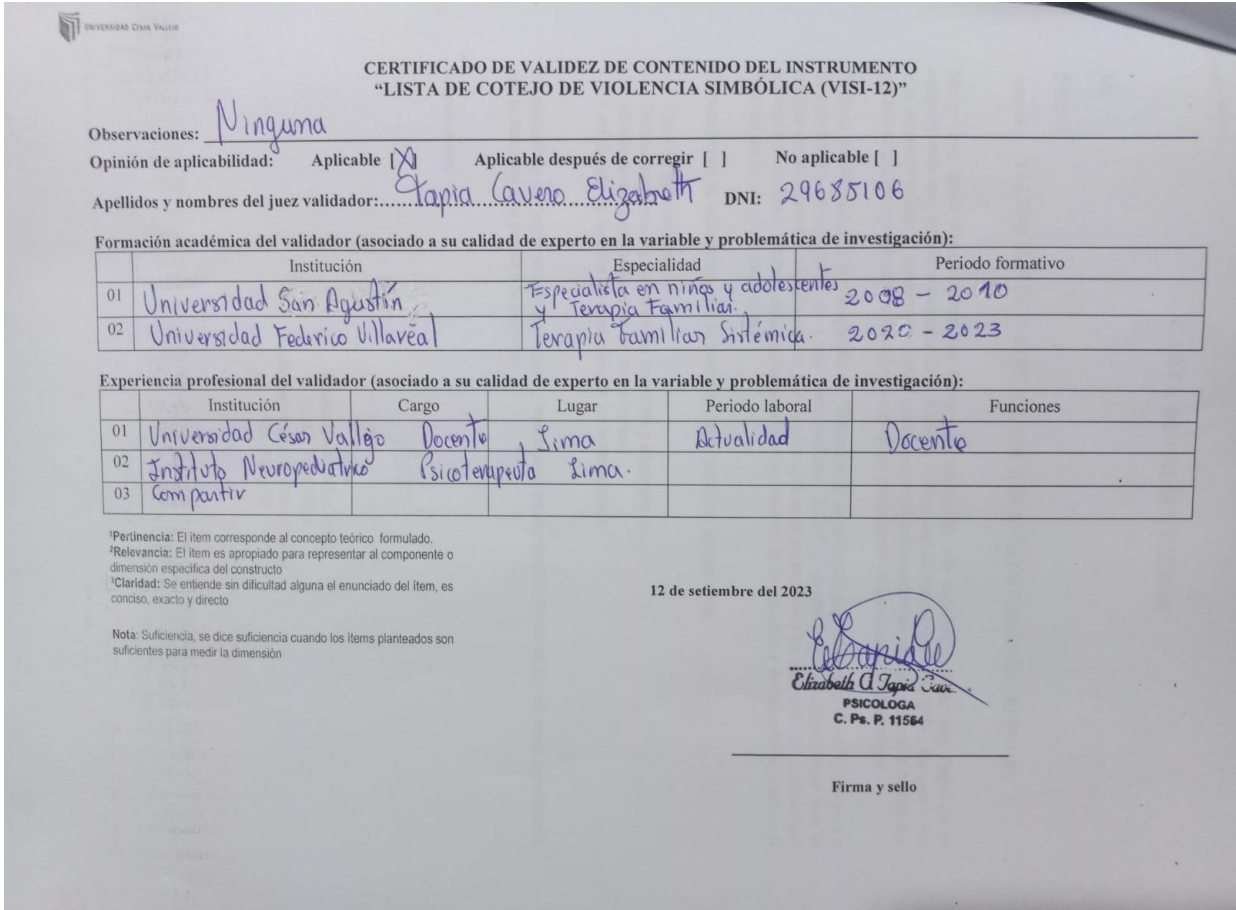 UNIVERSIDAD CÉSAR VALLEJO
CERTIFICADO DE VALIDEZ DE CONTENIDO DEL INSTRUMENTO
“LISTA DE COTEJO DE VIOLENCIA SIMBÓLICA (VISI-12)”
Observaciones: Ninguna
Opinión de aplicabilidad: Aplicable [X] Aplicable después de corregir [ ] No aplicable [ ]
Apellidos y nombres del juez validador:..... Tapia Cavero Elizabeth DNI: 29685106
Formación académica del validador (asociado a su calidad de experto en la variable y problemática de investigación):
Institución Especialidad Periodo formativo
01 Universidad San Agustín Especialista en niños y adolescentes y Terapia Familiar. 2008 - 2010
02 Universidad Federico Villaréal Terapia Familiar Sistémica. 2020 - 2023
Experiencia profesional del validador (asociado a su calidad de experto en la variable y problemática de investigación):
Institución Cargo Lugar Periodo laboral Funciones
01 Universidad César Vallejo Docente, Lima Actualidad Docente
02 Instituto Neuropediatrico Psicoterapeuta Lima.
03 Compartir
¹Pertinencia: El item corresponde al concepto teórico formulado.
²Relevancia: El item es apropiado para representar al componente o
dimensión especifica del constructo
³Claridad: Se entiende sin dificultad alguna el enunciado del item, es
conciso, exacto y directo
Nota: Suficiencia, se dice suficiencia cuando los items planteados son
suficientes para medir la dimensión
12 de setiembre del 2023
Elizabeth A Tapia
PSICOLOGA
C. Ps. P. 11564
Firma y sello